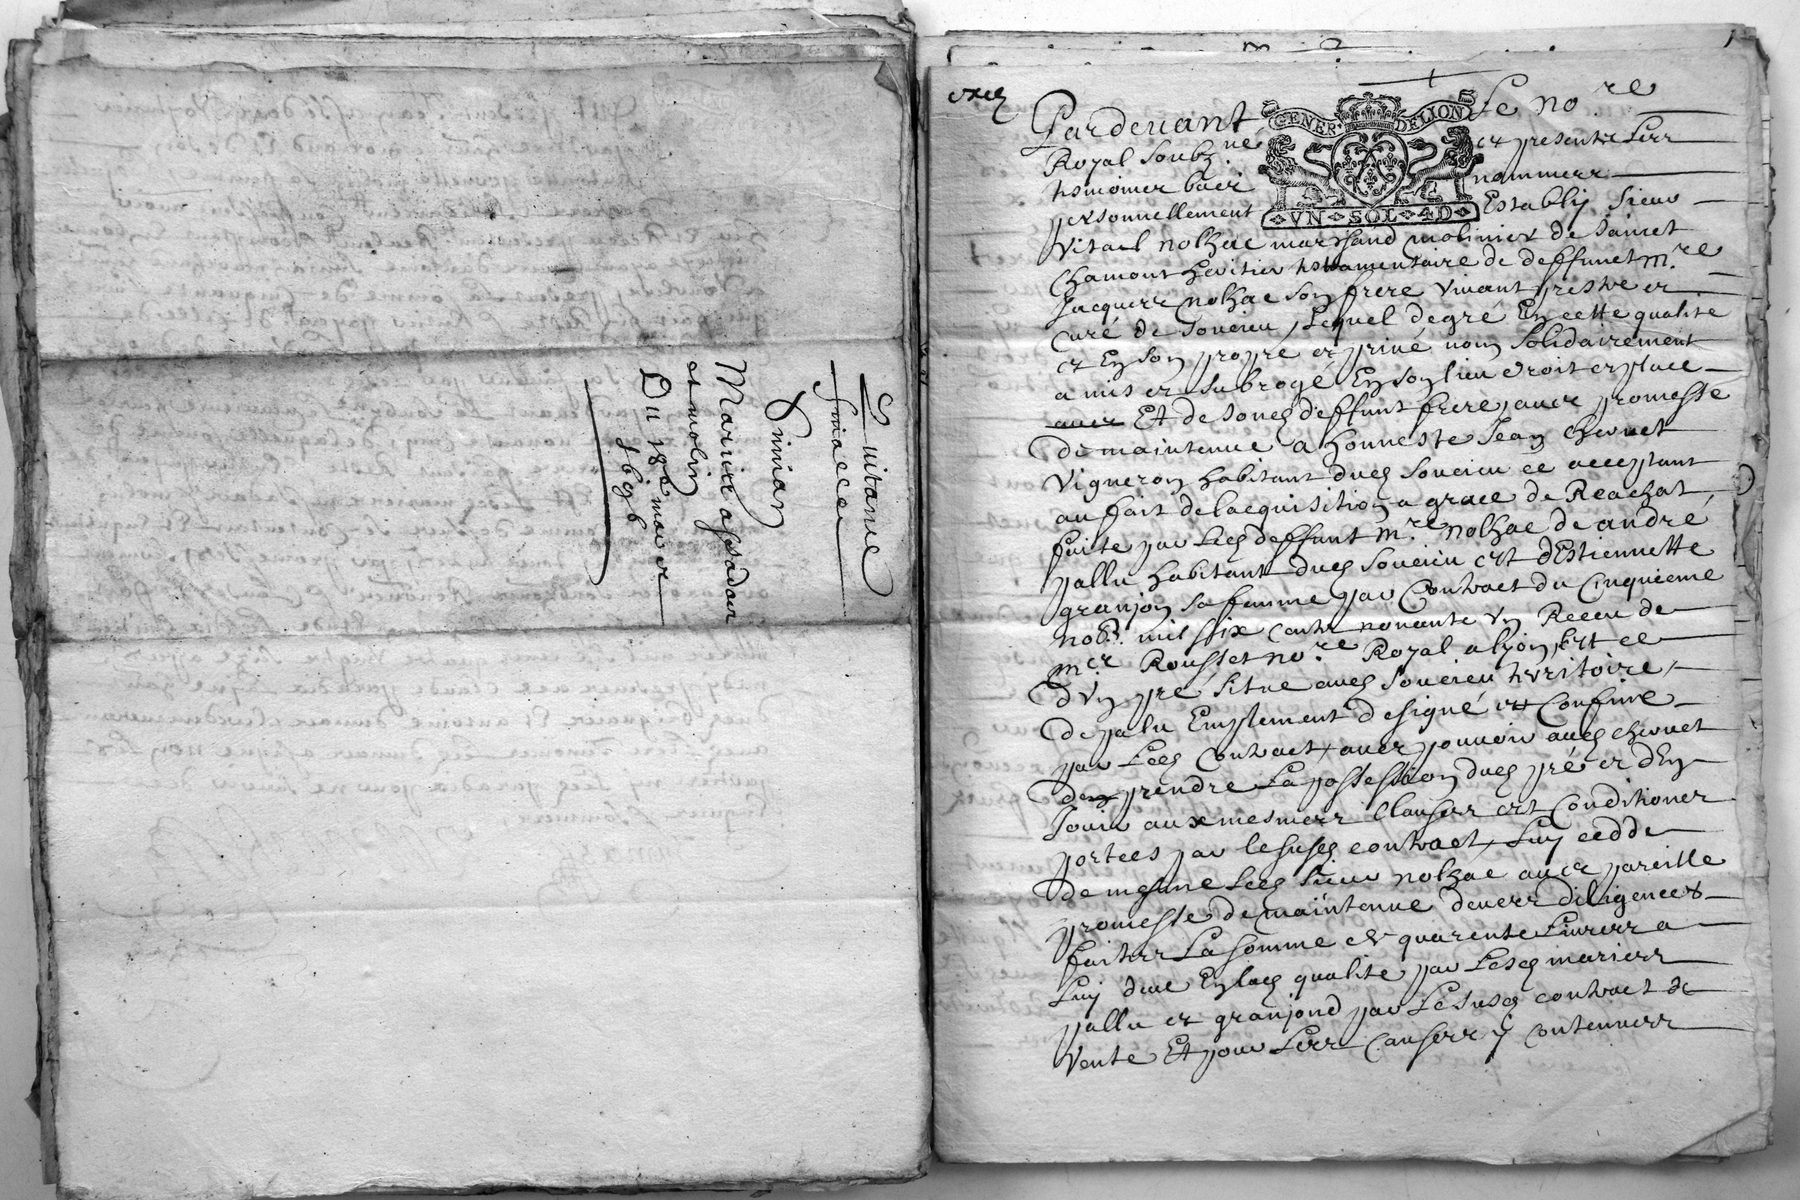 Quitance
finalle
Simian
Marrier assadour
et molin
Du 18e mars
1696
exer
GENER. DE LION
UN SOL 4D
Pardevant Le no.re
Royal soubz.né et presentz Lerr
tesmoinez bacr nommerr
personnellement Establÿ Sieur
Vitael nolhac marchand molinier de Sainct
Chamont heritier testamentaire de deffunct m.re
Jacquerr nolhac son frere vivant prestre et
Curé de Soucieu, Lequel de gré En cette qualité
et En son propre et privé nom Solidairement
a mis et subrogé En son lieu droit et place
Et de soud deffunt frere, avec promesse
De maintenue a honneste Jean chevnet
Vigneron habitant dud Soucieu ce acceptant
au fait de lacquisition a grace de Reachat,
faite par Led deffunt m.re nolhac de andré
pallu habitant dud Soucieu ert dEstiennette
granjon sa femme par Contract du Cinquieme
nob.e mil six centz nonante un Receu de
m.er Rousset no.re Royal a lyon, Ert ce
Dun pré situé aud Soucieu territoire,
De palu Emplement designé ert Confine
par Led Contract, avec pouvoir aud chevnet
prendre La possession dud pré et dEn
Jouir aux mesmerr Clauserr ert Conditioner
portees par le susd contract, Luy cedde
De mesme Led sieur nolhac avec pareille
promesse de maintenue deuerr diligencer
faiterr La somme de quarente Liurerr a
Luy deue En lad qualité par Lesd marierr
pallu et granjond par Le susd contract de
Vente Et pour Lerr Causerr y Contenuerr